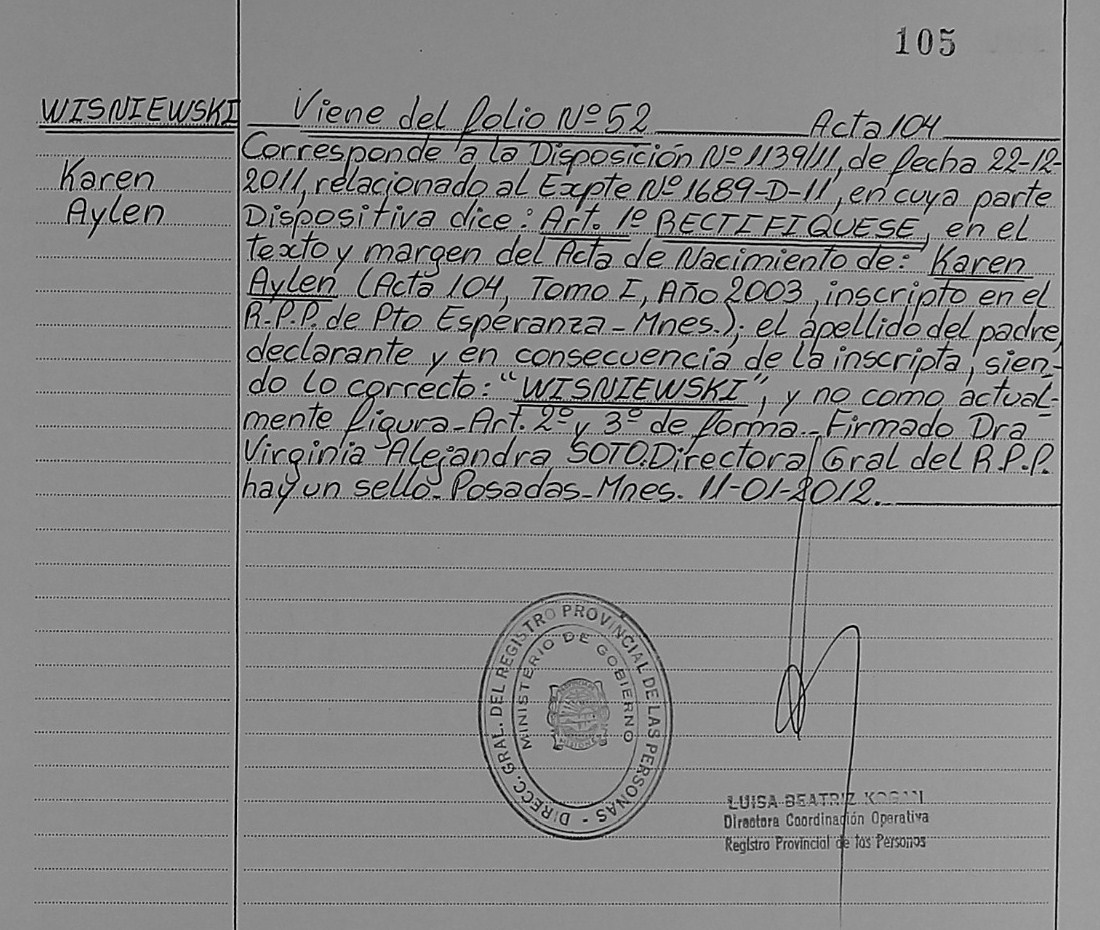 105
WISNIEWSKI
Karen
Aylen
Viene del folio Nº 52 Acta 104
Corresponde a la Disposición Nº 1139/11, de fecha 22-12-
2011, relacionado al Expte Nº 1689-D-11, en cuya parte
Dispositiva dice: Art. 1º RECTIFIQUESE, en el
texto y margen del Acta de Nacimiento de: Karen
Aylen (Acta 104, Tomo I, Año 2003, inscripto en el
R.P.P. de Pto Esperanza - Mnes.); el apellido del padre,
declarante y en consecuencia de la inscripta, sien-
do lo correcto: "WISNIEWSKI", y no como actual-
mente figura - Art. 2º y 3º de forma - Firmado Dra
Virginia Alejandra SOTO. Directora Gral del R.P.P.
hay un sello - Posadas - Mnes. 11-01-2012.
DIRECC. GRAL. DEL REGISTRO PROVINCIAL DE LAS PERSONAS -
MINISTERIO DE GOBIERNO
LUISA BEATRIZ
Directora Coordinación Operativa
Registro Provincial de las Personas